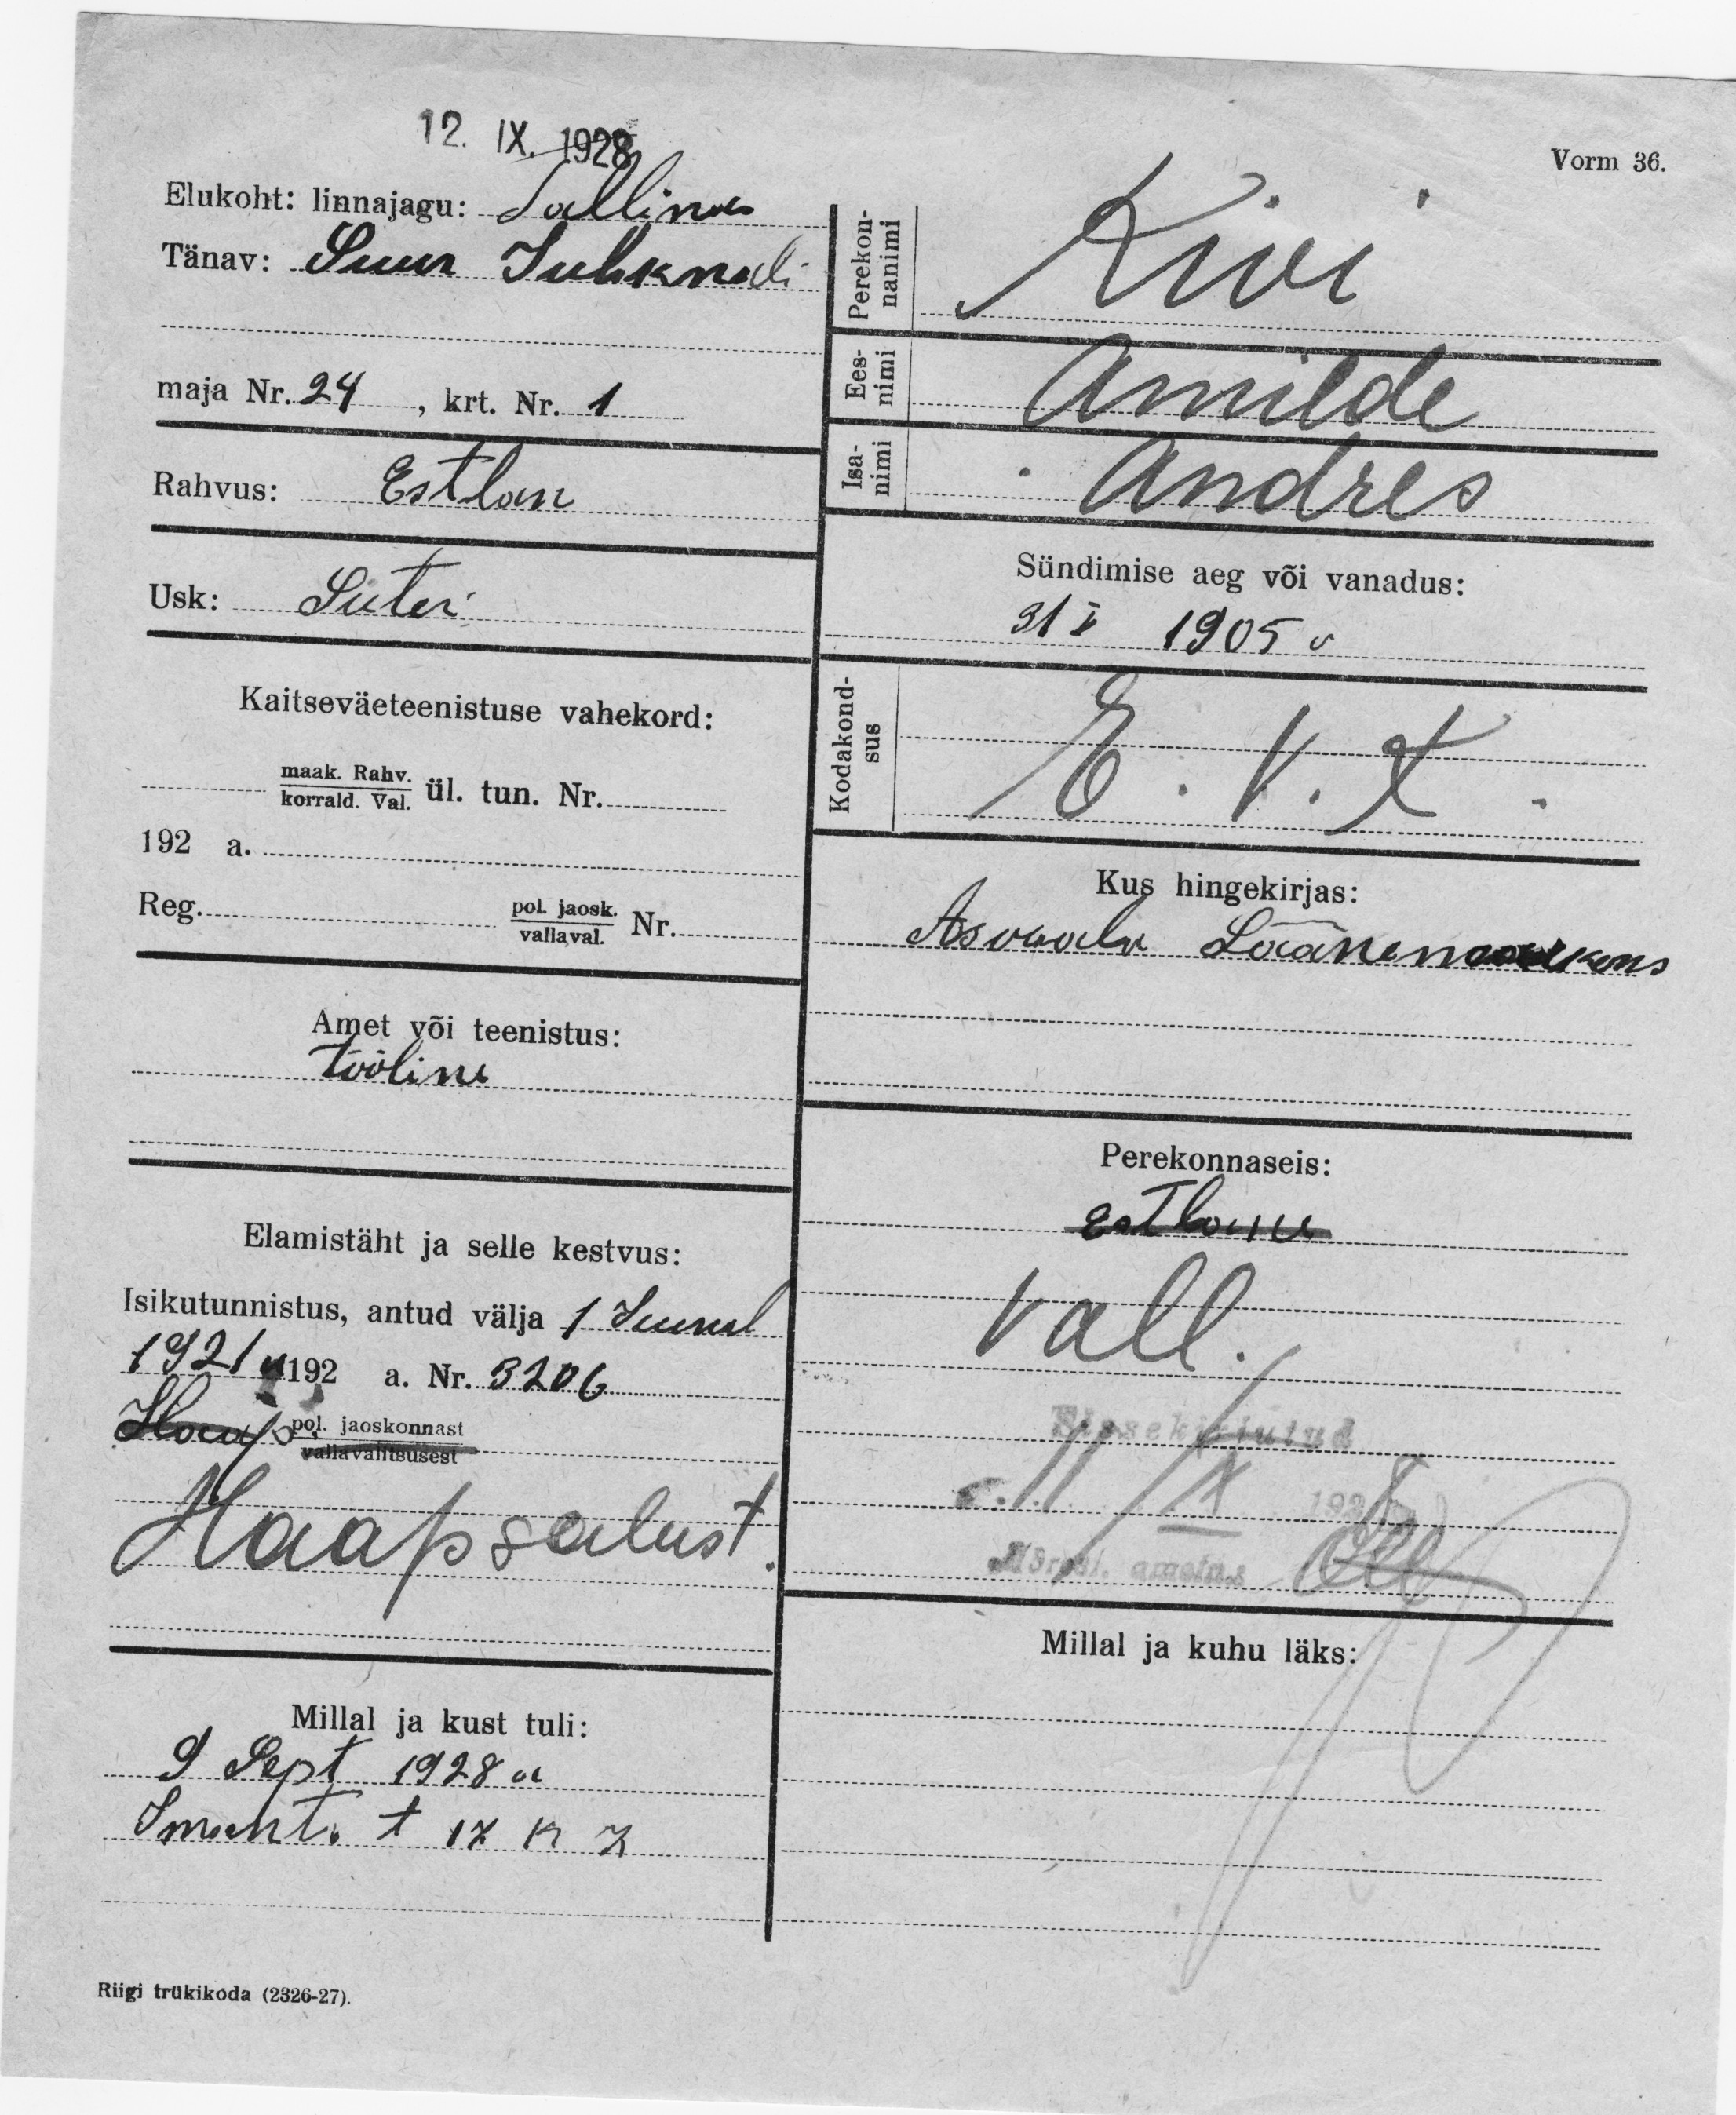 12. IX. 1928
Vorm 36.
Elukoht: linnajagu: Tallinas
Tänav: Suur Juhkrudi
maja Nr. 24 , krt. Nr. 1
Rahvus: Estlan
Usk: Luteri
Kaitseväeteenistuse vahekord:
maak. Rahv.
korrald. Val. ül. tun. Nr.
192 a.
Reg. pol. jaosk.
vallaval. Nr.
Amet või teenistus:
tööline
Elamistäht ja selle kestvus:
Isikutunnistus, antud välja 1 Juunil
1921 a 192 a. Nr. 3206
Haaps pol. jaoskonnast
vallavalitsusest
Haapsalust.
Millal ja kust tuli:
9 Sept 1928 a
t 17 K 7
Riigi trükikoda (2326-27).
Perekon-
nanimi
Kivi
Ees-
nimi
Amilde
Isa-
nimi
Andres
Sündimise aeg või vanadus:
31 I 1905
Kodakond-
sus
E. V. K.
Kus hingekirjas:
Läänemaakons
Perekonnaseis:
Estlane
Vall.
Sissekirjutud
11/X 192
ametn.
Millal ja kuhu läks: